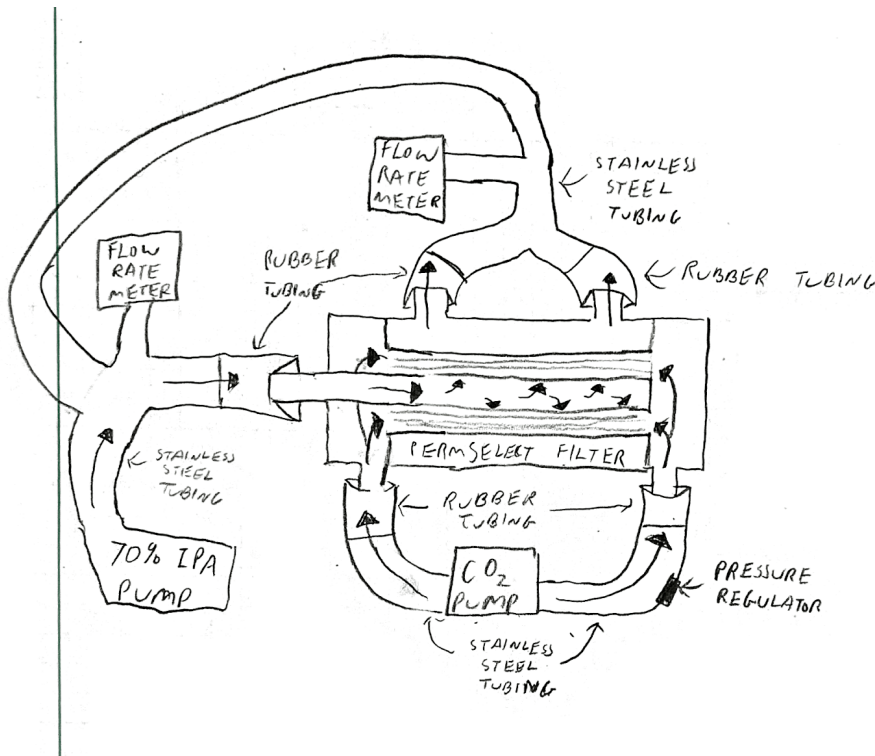 FLOW
RATE
METER
STAINLESS
STEEL
TUBING
FLOW
RATE
METER
RUBBER
TUBING
RUBBER TUBING
STAINLESS
STEEL
TUBING
PERMSELECT FILTER
RUBBER
TUBING
70% IPA
PUMP
CO2
PUMP
PRESSURE
REGULATOR
STAINLESS
STEEL
TUBING